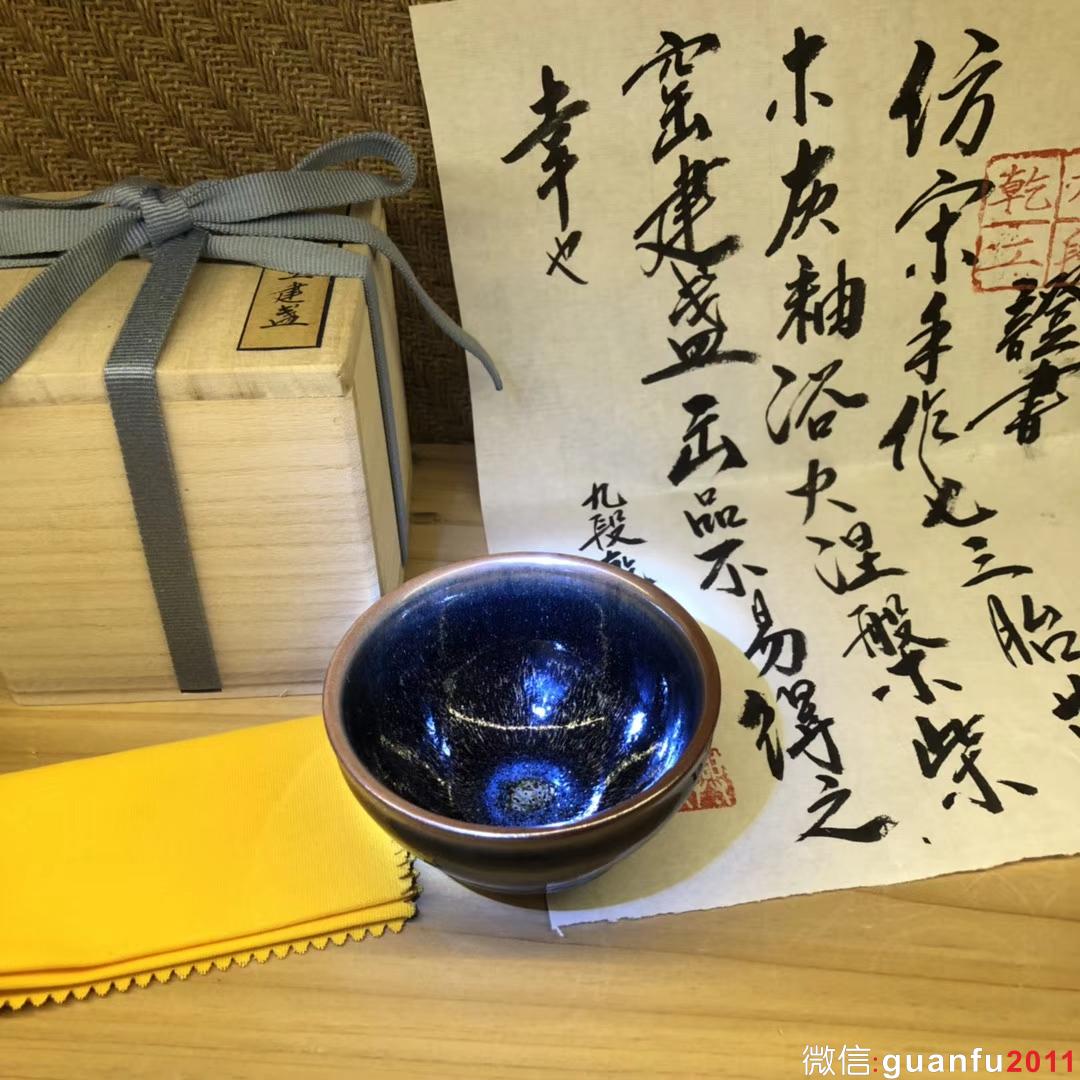 證書
仿宋手作也三胎
木灰釉浴火涅槃柴
窑建盏缶品不易得之
幸也
九段
乾
建盏
微信:guanfu2011